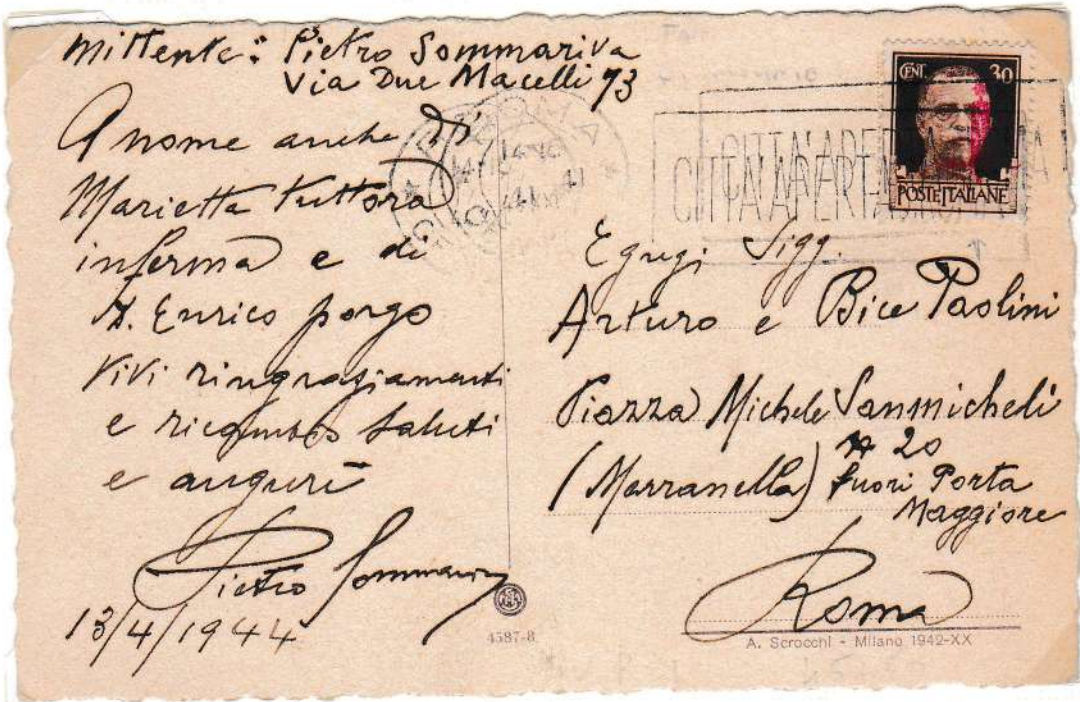 Mittente: Pietro Sommariva
Via Due Macelli 73
A nome anche di
Marietta tuttora
inferma e di
Enrico porgo
vivi ringraziamenti
e ricambio saluti
e auguri
Pietro Sommariva
13/4/1944
4587-8
ROMA
CITTA' APERTA
CENT. 30
POSTE ITALIANE
Egregi Sigg.
Arturo e Bice Paolini
Piazza Michele Sanmicheli
N 20
(Marranella) fuori Porta
Maggiore
Roma
A. Scrocchi - Milano 1942-XX